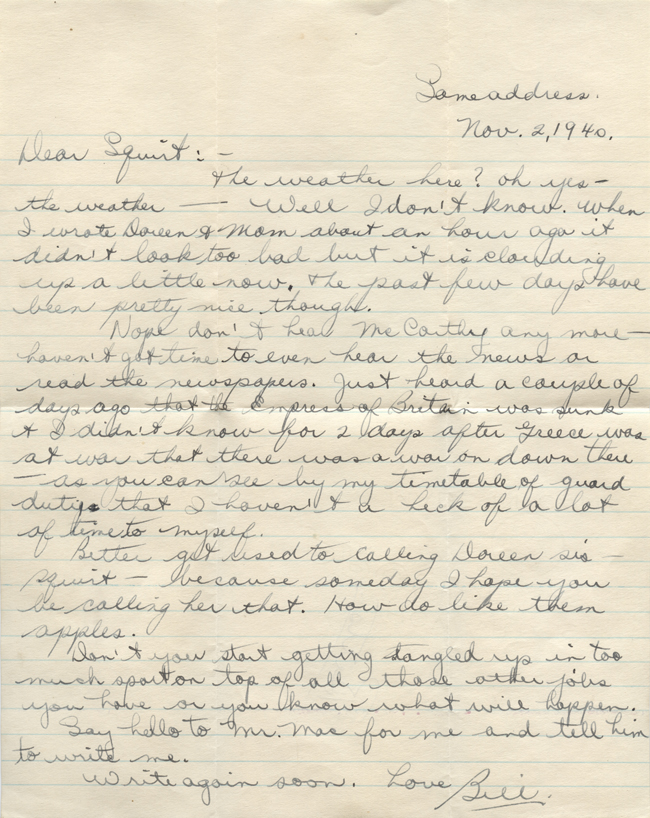 Same address.
Nov. 2, 1940.
Dear Squirt: -
the weather here? oh yes -
the weather — Well I don't know. When
I wrote Doreen & Mom about an hour ago it
didn't look too bad but it is clouding
up a little now. The past few days have
been pretty nice though.
Nope don't hear McCarthy any more -
haven't got time to even hear the news or
read the newspapers. Just heard a couple of
days ago that the Empress of Britain was sunk
& I didn't know for 2 days after Greece was
at war that there was a war on down there
- as you can see by my timetable of guard
duty that I haven't a heck of a lot
of time to myself.
Better get used to calling Doreen sis -
squirt - because someday I hope you
be calling her that. How do like them
apples.
Don't you start getting tangled up in too
much sport on top of all those other jobs
you have or you know what will happen.
Say hello to Mr. Mas for me and tell him
to write me.
Write again soon. Love Bill.